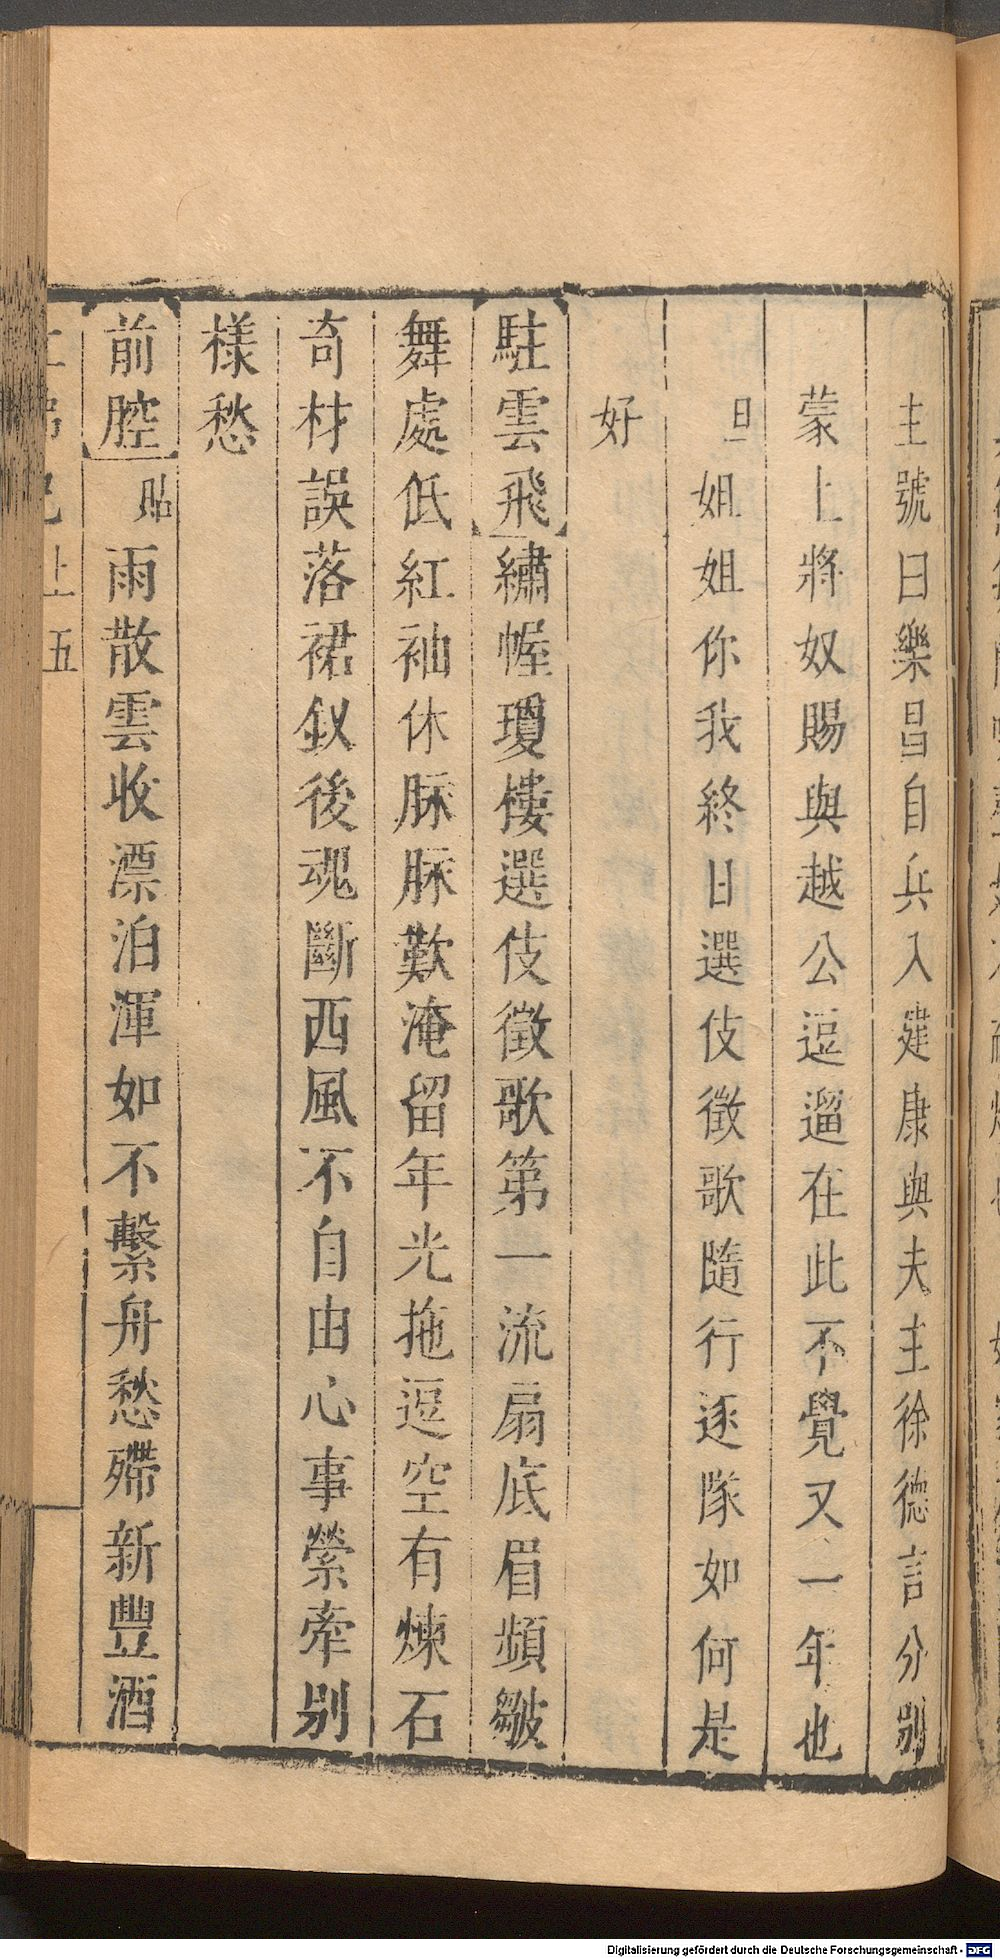 主號曰樂昌自兵入建康與夫主徐德言分別
蒙上將奴賜與越公逗遛在此不覺又一年也
旦姐姐你我終日選伎徵歌隨行逐隊如何是
好
駐雲飛繡幄瓊樓選伎徵歌第一流扇底眉頻皺
舞處低紅袖休脉脉歎淹留年光拖逗空有煉石
奇材誤落裙釵後魂斷西風不自由心事縈牽别
樣愁
前腔貼雨散雲收漂泊渾如不繫舟愁殢新豐酒
上五
Digitalisierung gefördert durch die Deutsche Forschungsgemeinschaft - DFG